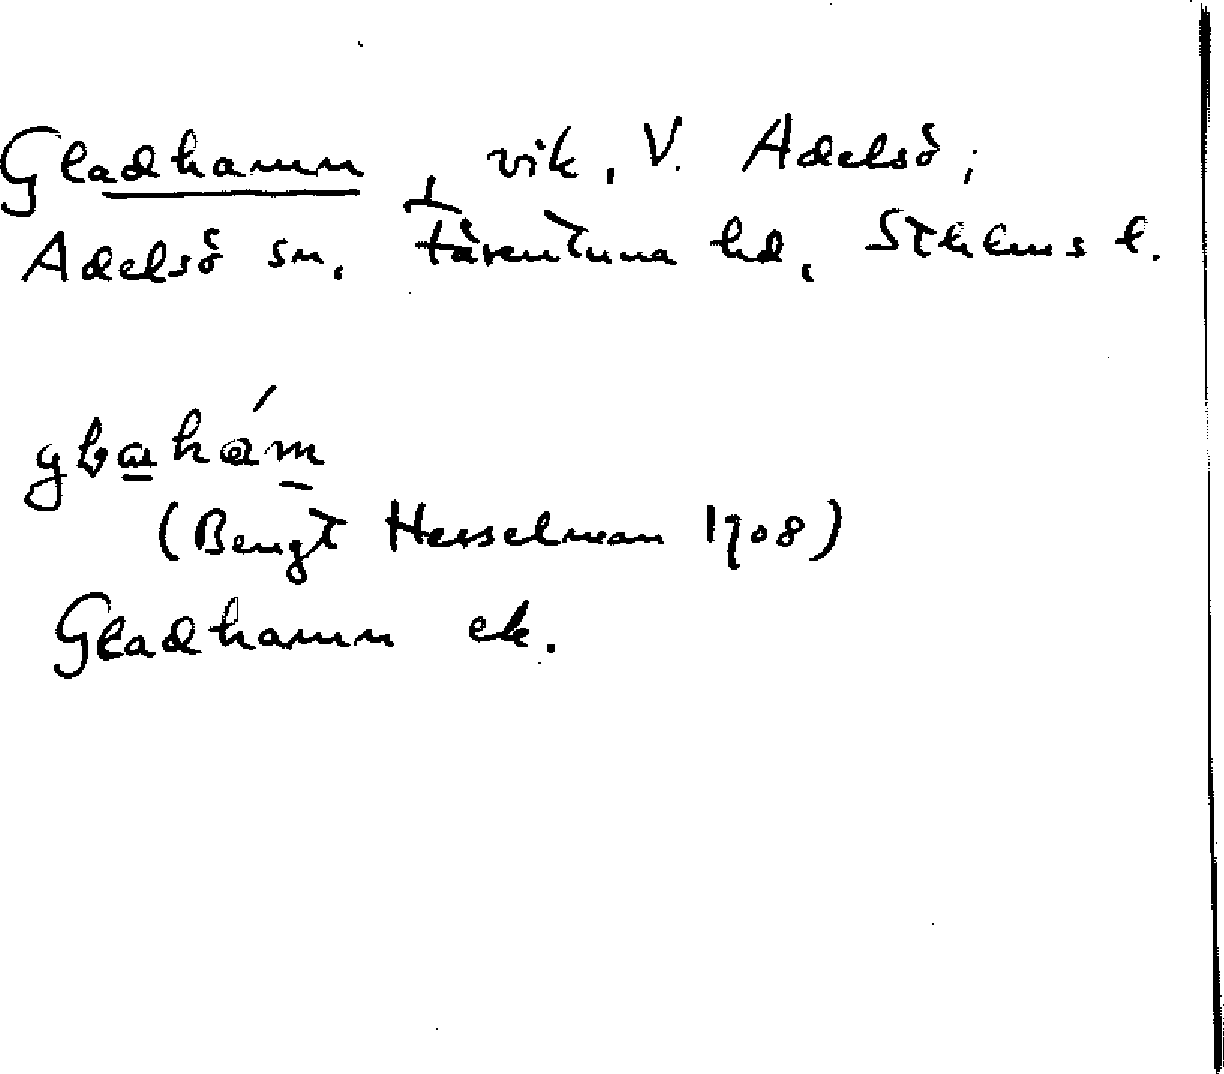 Gladhamn, vik, V. Adelsö;
Adelsö sn, Färentuna hd, Sthlms l.
(Bengt Hesselman 1908)
Gladhamn ek.